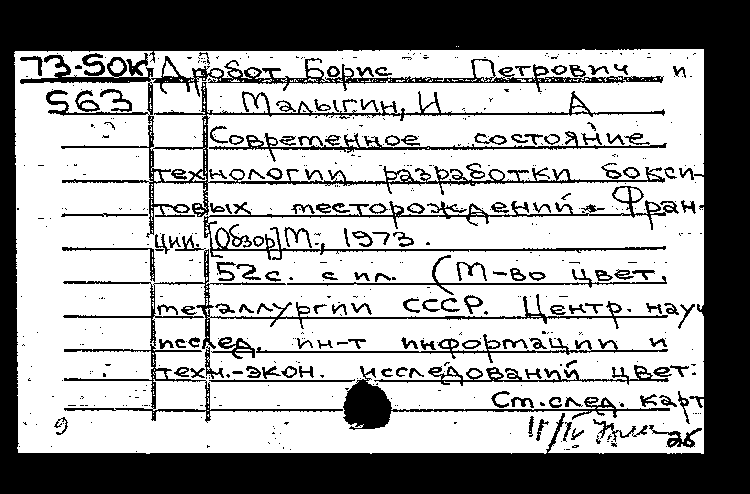 73-50к Дробот, Борис Петрович и
563 Малыгин, И А
Современное состояние
технологии разработки бокси-
товых месторождений Фран-
ции. [Обзор] М., 1973.
52 с. с ил. (М-во цвет.
металлургии СССР. Центр. науч
исслед. ин-т информации и
техн.-экон. исследований цвет.
Ст. след. карт
9 11/IV 26